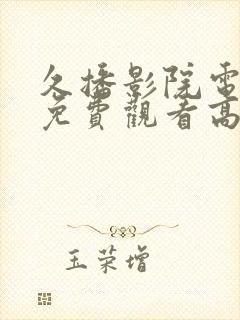 久播影院電
免費觀看高
玉荣增